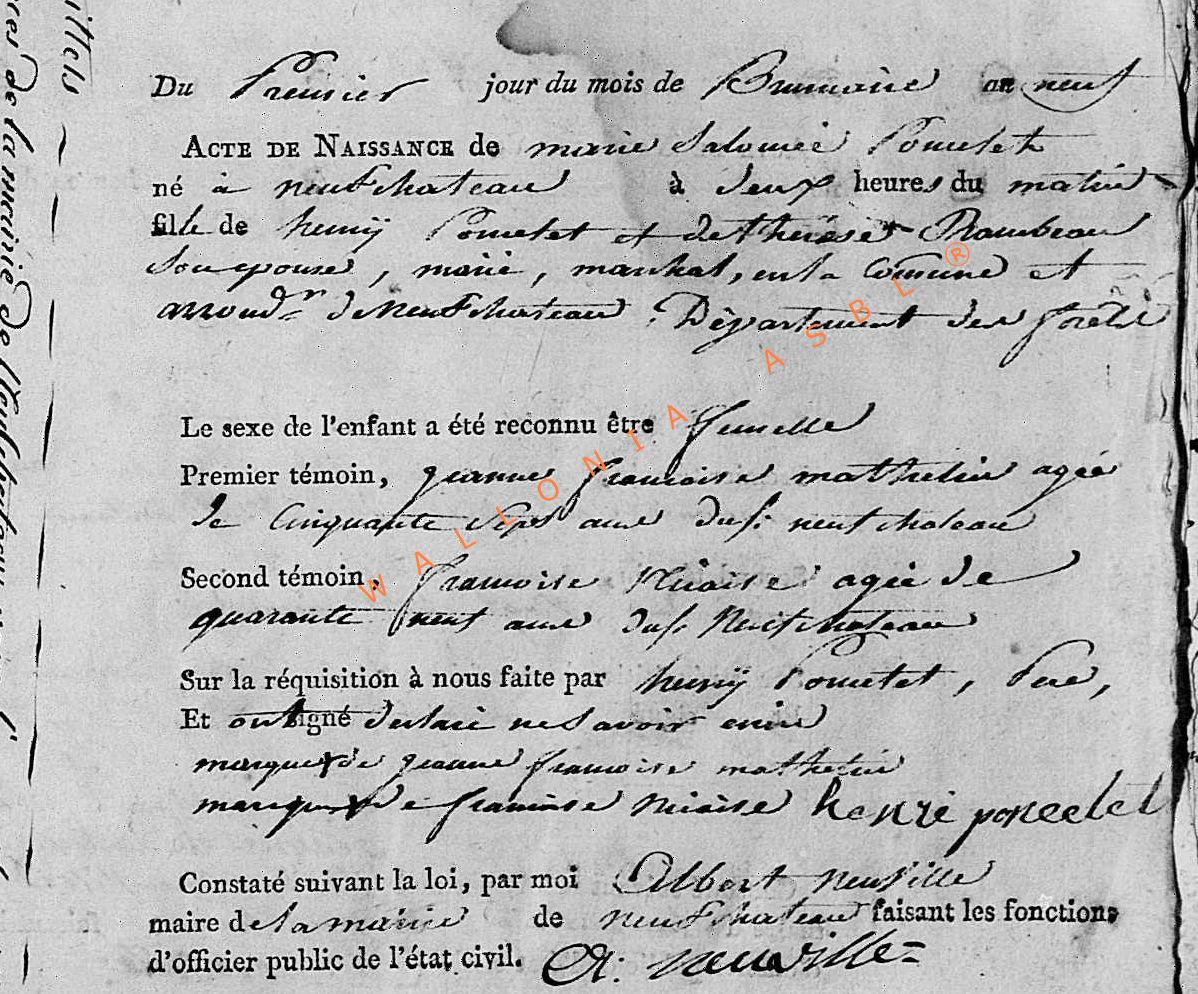 Du Premier jour du mois de Brumaire an neuf
ACTE DE NAISSANCE de marie Salomée Poncelet
né à neufchateau à deux heures du matin
fille de henrÿ Poncelet et de thérèse Rambeau
Son epouse, marié, marchal, en la Comune et
arrond.r de neufchateau Département des forêts
Le sexe de l'enfant a été reconnu être femelle
Premier témoin, jeanne francoise mathelin agée
de Cinquante Sept ans dud. neufchateau
Second témoin, francoise agée de
quarante neuf ans dud. Neufchateau
Sur la réquisition à nous faite par henrÿ Poncelet, Pere,
Et ont signé declaré ne Savoir ecrire
marque de jeanne francoise mathelin
marque de francoise henri poncelet
Constaté suivant la loi, par moi Albert neuville
maire de la mairie de neufchateau faisant les fonctions
d'officier public de l'état civil. A: neuville
WALLONIA ASBL ®